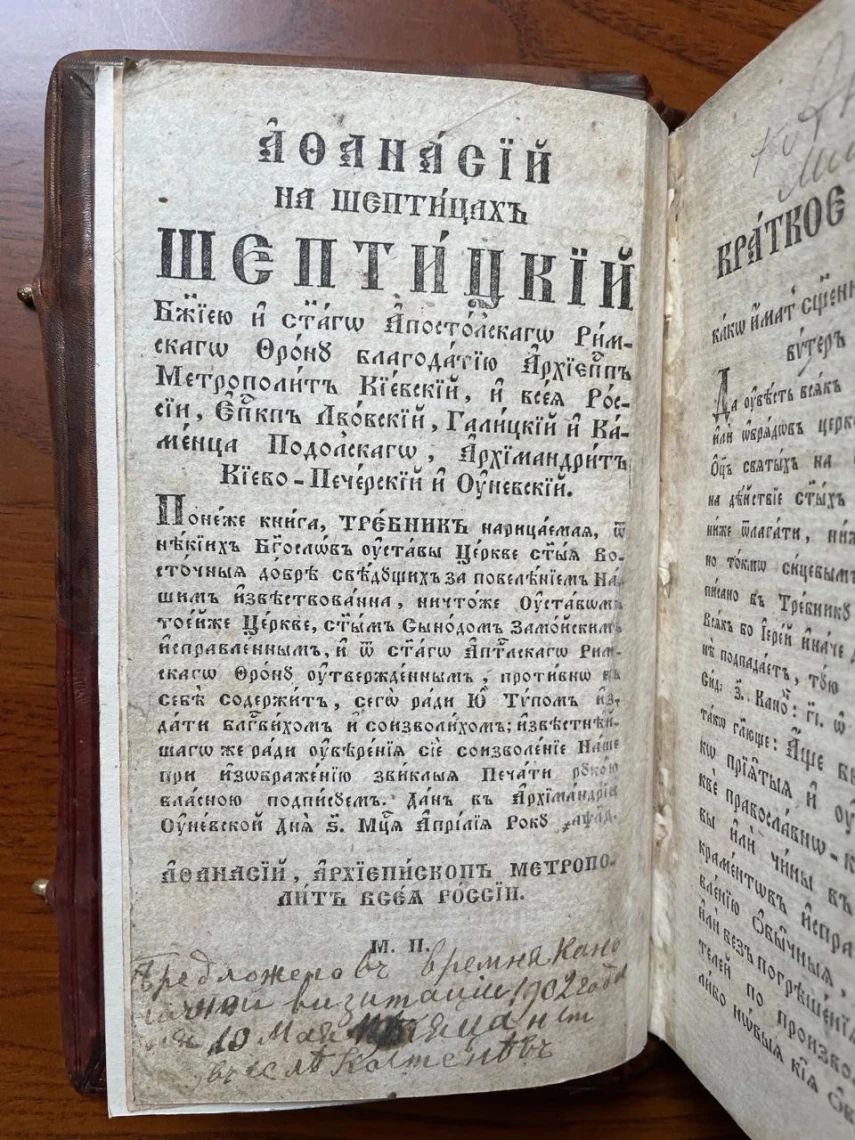 А҆ѲАНА́СЇЙ
НА ШЕПТИ́ЦАХЪ
ШЕПТИ́ЦКЇЙ
Бж҃їею и҆ ст҃а́гѡ А҆посто́лскагѡ Ри́м-
скагѡ Ѳро́нꙋ благода́тїю А҆рхїеп҃пъ
Метрополи́тъ Кїе́вскїй, и҆ всея̀ Рѡ́с-
сїи, Е҆п҃кпъ Лво́вскїй, Гали́цкїй и҆ Ка-
ме́нца Подо́лскагѡ, А҆рхїмандри́тъ
Кїево-Пече́рскїй и҆ Оу҆не́вскїй.
Поне́же кни́га, ТРЕ́БНИКЪ нарица́емая, ѿ
нѣ́кїихъ Бг҃осло́въ оу҆ста́вы Це́ркве ст҃ы́я Во-
сто́чныя до́брѣ свѣ́дꙋщихъ за повелѣ́нїемъ На-
шимъ и҆звѣ́ствованна, ничто́же Оу҆ста́вѡмъ
тоея́йже Це́ркве, ст҃ы́мъ Сѵно́домъ Замо́йскимъ
и҆спра́вленнымъ, и҆ ѿ ст҃а́гѡ А҆п҃лскагѡ Ри́м-
скагѡ Ѳро́нꙋ оу҆твержде́ннымъ, проти́вно въ
себѣ̀ содержи́тъ, сегѡ̀ ра́ди Ю҆̀ Тѵ́помъ и҆з-
да́ти благ҃ви́хомъ и҆ соизволи́хомъ; и҆звѣ́стнѣй-
шагѡ же ра́ди оу҆вѣре́нїя сїѐ соизволе́нїе На́ше
при и҆зѡбраже́нїю звы́клыя Печа́ти рꙋко́ю
вла́сною подпи́сꙋемъ. Да́нъ въ А҆рхїма́ндрїи
Оу҆не́вской Дня̀ ѕ҃. Мц҃а А҆прі́лїя Ро́кꙋ ҂аѱлд.
А҆ѲАНА́СЇЙ, А҆РХЇЕПИ́СКОПЪ МЕТРОПО-
ЛИ́ТЪ ВСЕЯ̀ РѠ́ССЇИ.
М. П.
Предложено въ времня Кано
визитации 1902 года
10 Мая
въ селѣ Костеневѣ
КРА́ТКОЕ
ка́кѡ и҆́мать сщ҃е́нн
Да оу҆вѣ́сть всѧ́къ
и҆лѝ ѡ҆бря́дѡвъ церк
Ѻ҆ц҃ъ святы́хъ на
на дѣ́йствїе ст҃ы́хъ
ни́же ѿлага́ти, ни́ж
но то́кмѡ си́цевымъ
пи́сано въ Тре́бникꙋ
Вся́къ бо Їере́й и҆на́че
не подпада́етъ, то́ю
та́кѡ гл҃юще: А҆́ще
кѡ прїя́тыя и҆ оу҆
квѐ правосла́внѡ-К
вы и҆лѝ чи́ны въ
крамен́тѡвъ и҆спра
вле́нїю ѻ҆бы́чныя,
и҆лѝ без̾ погрѣше́нїѧ
те́лей по произво
ли́кѡ нѡ́выя кі́я